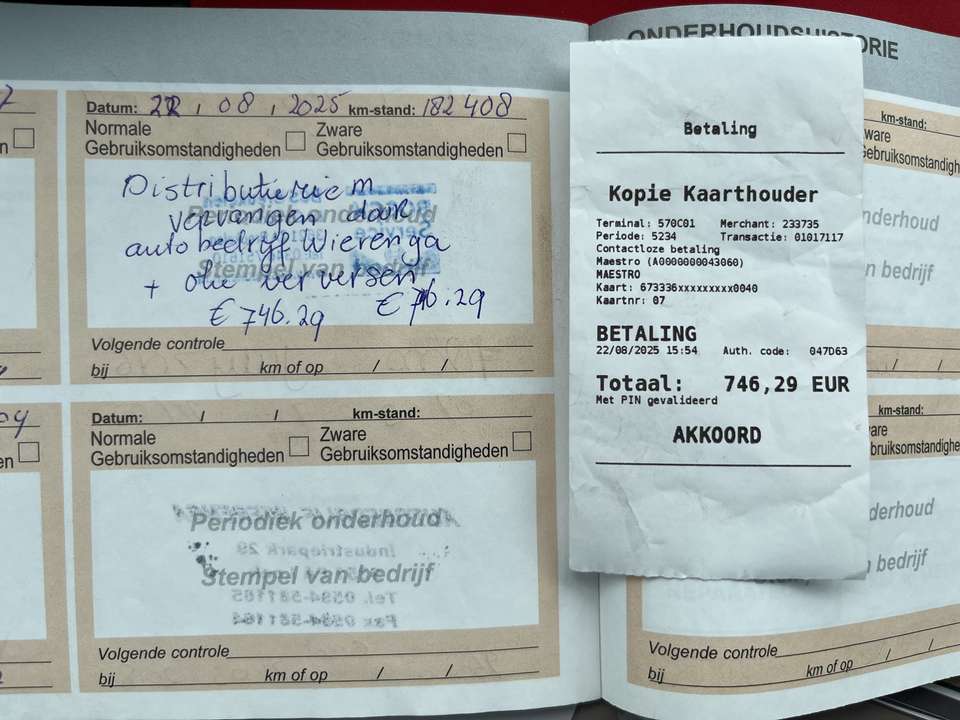 ONDERHOUDSHISTORIE
Datum: 22 / 08 / 2025 km-stand: 182 408
Normale
Gebruiksomstandigheden
Zware
Gebruiksomstandigheden
Distributieriem
vervangen door
autobedrijf Wierenga
+ olie verversen
€ 746.29 € 746.29
Periodiek onderhoud
Stempel van bedrijf
Volgende controle
bij km of op / /
Datum: / / km-stand:
Normale
Gebruiksomstandigheden
Zware
Gebruiksomstandigheden
Periodiek onderhoud
Stempel van bedrijf
Industriepark 29
Tel. 0594-581165
Fax 0594-581164
Volgende controle
bij km of op / /
Betaling
Kopie Kaarthouder
Terminal: 570C01 Merchant: 233735
Periode: 5234 Transactie: 01017117
Contactloze betaling
Maestro (A0000000043060)
MAESTRO
Kaart: 673336xxxxxxxxx0040
Kaartnr: 07
BETALING
22/08/2025 15:54 Auth. code: 047D63
Totaal: 746,29 EUR
Met PIN gevalideerd
AKKOORD
km-stand:
ware
Gebruiksomstandigheden
nderhoud
n bedrijf
/ /
km-stand:
ware
bruiksomstandigheden
derhoud
n bedrijf
Volgende controle
bij km of op / /